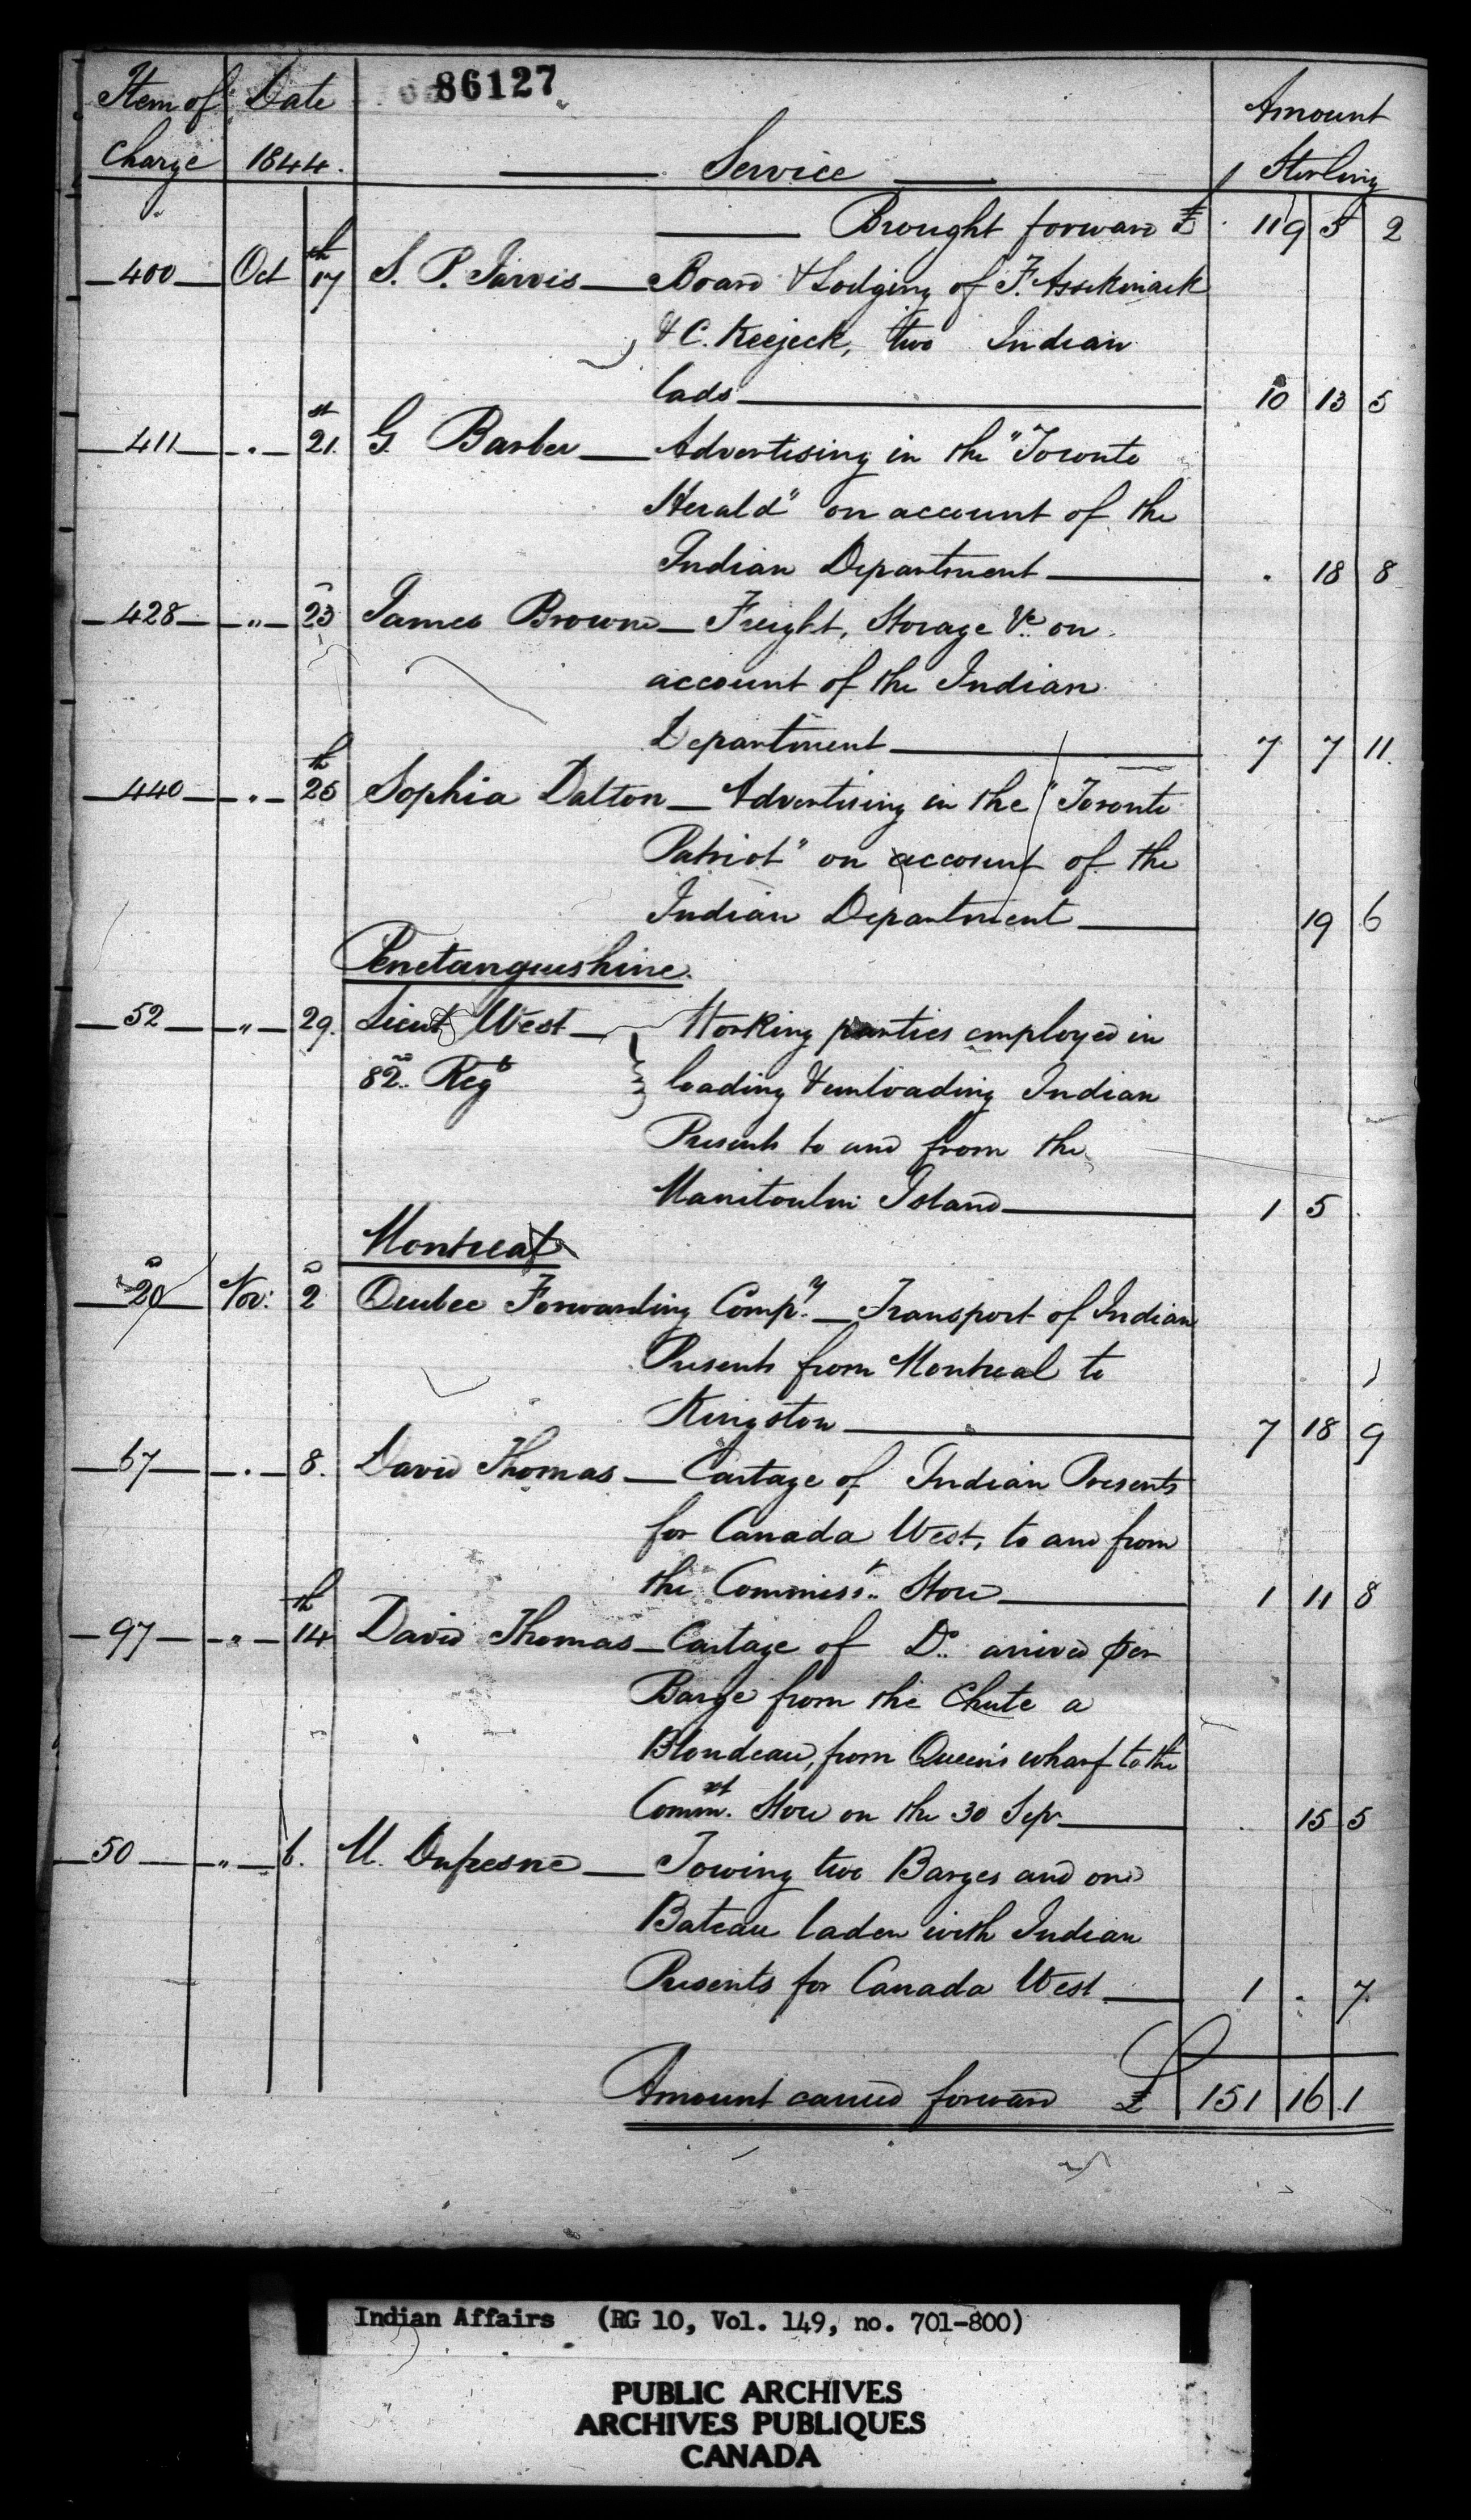 86127
Item of Charge Date 1844. Service Amount Sterling
Brought forward £ 119 5 2
400 Oct 17th S. P. Jarvis Board & Lodging of F. Assikinack
& C. Keejeck, two Indian
lads 10 13 5
411 " 21st G. Barber Advertising in the "Toronto
Herald" on account of the
Indian Department . 18 8
428 " 23 James Browne Freight, Storage &c on
account of the Indian
Department 7 7 11
440 " 25th Sophia Dalton Advertising in the "Toronto
Patriot" on account of the
Indian Department 19 6
Penetanguishine.
52 " 29. Lieut West Working parties employed in
82nd Regt loading & unloading Indian
Presents to and from the
Manitoulin Island 1 5
Montreal
20 Nov: 2 Quebec Forwarding Compy. Transport of Indian
Presents from Montreal to
Kingston 7 18 9
67 " 8. David Thomas Cartage of Indian Presents
for Canada West, to and from
the Commissr. Store 1 11 8
97 " 14th David Thomas Cartage of Do. arrived per
Barge from the Chute a
Blondeau, from Queen's wharf to the
Commt. Store on the 30 Sepr . 15 5
50 " 6. M. Dufresne Towing two Barges and one
Bateau laden with Indian
Presents for Canada West 1 . 7
Amount carried forward £ 151 16 1
Indian Affairs (RG 10, Vol. 149, no. 701-800)
PUBLIC ARCHIVES
ARCHIVES PUBLIQUES
CANADA